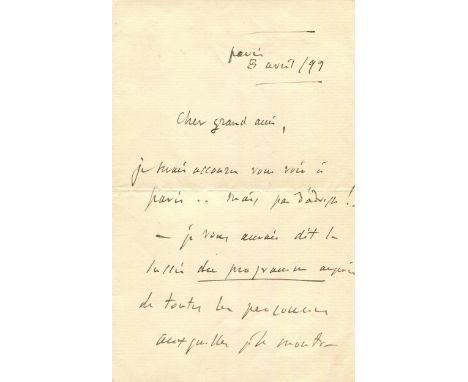 paris
8 avril/99
Cher grand ami,
je serais accouru vous voir à
paris .. mais, pas d'adresse !..
— je vous aurais dit le
succès du programme auprès
de toutes les personnes
auxquelles je le montre